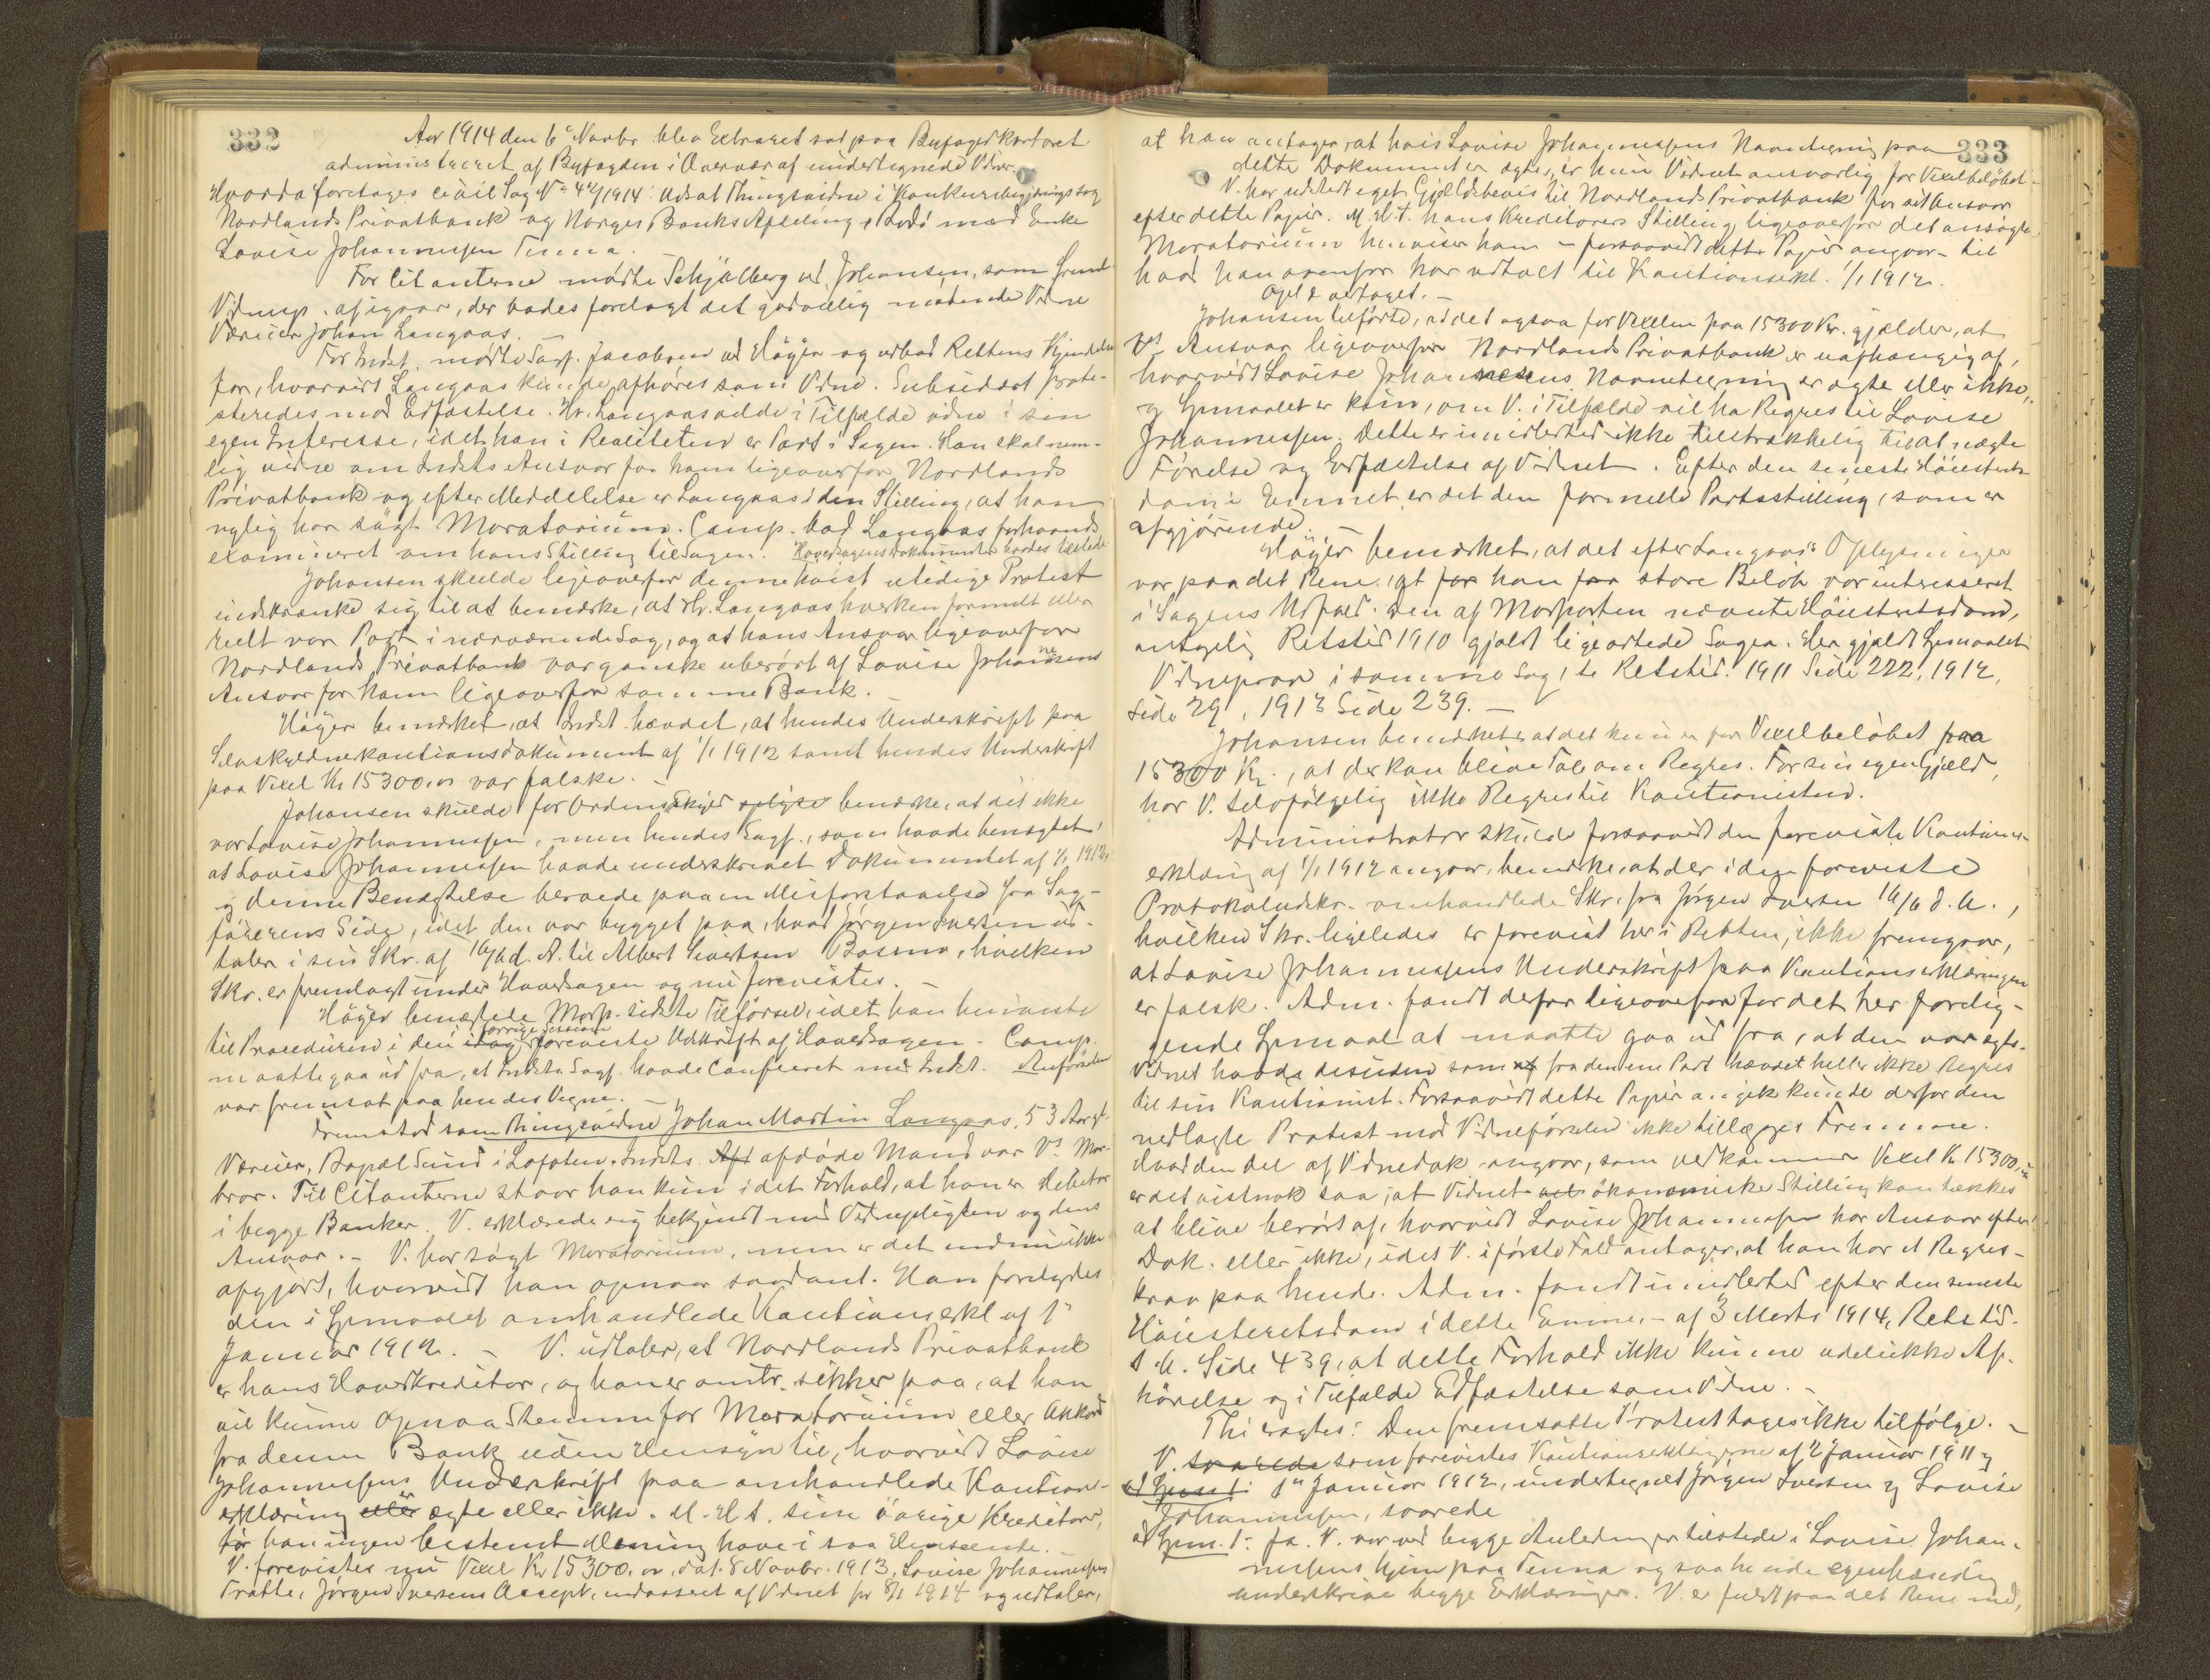 332
Aar 1914 den 6 Novbr. blev Extraret sat paa Byfogedkontoret
administreret af Byfogden i Overvær af undertegnede Vidner.
Hvorda foretoges civil Sag No 42/1914: Udsat Thingsvidne i Konkursbegjæringssag
Nordlands Privatbank og Norges Banks Afdeling i Bodø mod Enke
Lovise Johannessen Tenna.
For Citanterne mødte Schjølberg ved Johansen, som freml.
Vidnesp. af igaar, der bades forelagt det godvillig mødende Vidne
Væreier Johan Langaas. —
For Indst. mødte Sagf. Jacobsen ved Høyer og udbad Rettens Kjendelse
for, hvorvidt Langaas kunde afhøres som Vidne. Subsidært prote-
steredes mod Edfæstelse. Hr. Langaas vilde i Tilfælde vidne i sin
egen Interesse, idet han i Realiteten er Part i Sagen. Han skal nem-
lig vidne om Indsts Ansvar for ham ligeoverfor Nordlands
Privatbank og efter Meddelelse er Langaas i den Stilling, at han
nylig har søgt Moratorium. Comp. bad Langaas forhaands
examineret om hans Stilling til Sagen. Hovedsagens Dokumenter havdes tilstede
Johansen skulde ligeoverfor denne høist utidige Protest
indskrænke sig til at bemærke, at Hr. Langaas hverken formelt eller
reelt var Part i nærværende Sag, og at hans Ansvar ligeoverfor
Nordlands Privatbank var ganske uberørt af Lovise Johannesens
Ansvar for ham ligeoverfor samme Bank. —
Høyer bemærket, at Indst. hævdet, at hendes Underskrift paa
Selvskyldnerkautionsdokument af 1/1 1912 samt hendes Underskrift
paa Vexel Kr 15300,00 var falske. —
Johansen skulde for Ordens Skyld oplyse bemærke, at det ikke
var Lovise Johannessen, men hendes Sagf., som havde benægtet,
at Lovise Johannessen havde underskrevet Dokumentet af 1/1 1912,
og denne Benægtelse beroede paa en Misforstaaelse fra Sag-
førerens Side, idet den var bygget paa, hvad Jørgen Iversen ud-
taler i sin Skr. af 16/6 d. A. til Albert Sivertsen Bosmo, hvilken
Skr. er fremlagt under Hovedsagen og nu forevistes. —
Høyer benægtede Modp. sidste Tilførsel, idet han henviste
til Proceduren i den i dag forrige Session foreviste Udskrift af Hovedsagen. Comp.
maatte gaa ud fra, at Indsts Sagf. havde confereret med Indst. Anførslen
var fremsat paa hendes Vegne. —
Fremstod som Thingsvidne Johan Martin Langaas, 53 Aar gl.
Væreier, Bopæl Sund i Lofoten. Indsts. Afd afdøde Mand var Vs Mor-
bror. Til Citanterne staar han kun i det Forhold, at han er Debitor
i begge Banker. V. erklærede sig bekjendt med Vidnepligten og dens
Ansvar. — V. har søgt Moratorium, men er det endnu ikke
afgjort, hvorvidt han opnaar saadant. Han forelagdes
den i Spmaalet omhandlede Kautionserkl. af 1
Januar 1912. — V. udtaler, at Nordlands Privatbank
er hans Hovedkreditor, og han er omtr. sikker paa, at han
vil kunne opnaa Stemme for Moratorium eller Akkord
fra denne Bank uden Hensyn til, hvorvidt Lovise
Johannessens Underskrift paa omhandlede Kautions-
erklæring eller er ægte eller ikke. M. H. t. sine øvrige Kreditorer,
tør han ingen bestemt Mening have i saa Henseende. —
V. forevistes nu Vexel Kr 15300,00, dat. 8 Novbr. 1913, Lovise Johannessens
Tratte, Jørgen Iversens Accept, endosseret af Vidnet pr 8/1 1914 og udtaler,
333
at han antager, at hvis Lovise Johannessens Navntegning paa
dette Dokument er ægte, er hun Vidnet ansvarlig for Vexelbeløbet.
V. har udstedt eget Gjældsbevis til Nordlands Privatbank for sit Ansvar
efter dette Papir. M. H. t. hans Kreditorers Stilling ligeoverfor det ansøgte
Moratorium henviser han – forsaavidt dette Papir angaar – til
hvad han ovenfor har udtalt til Kautionserkl. 1/1 1912.
Opl. & vedtaget. —
Johansen tilførte, at det ogsaa for Vexelen paa 15300 Kr. gjælder, at
Vs Ansvar ligeoverfor Nordlands Privatbank er uafhængig af,
hvorvidt Lovise Johannesens Navnetegning er ægte eller ikke,
og Spmaalet er kun, om V. i Tilfælde vil ha Regres til Lovise
Johannessen. Dette er imidlertid ikke tilstrækkelig til at nægte
Førelse og Edfæstelse af Vidnet. Efter den seneste Høiesterets-
dom i Emnet er det den formelle Partsstilling, som er
afgjørende. —
Høyer bemærket, at det efter Langaas's Oplysninger
var paa det Rene, at for han for store Beløb var interesseret
i Sagens Udfald. Den af Modparten nævnte Høiesteretsdom,
antagelig Retstid. 1910 gjaldt ligeartede Sager. Her gjaldt Spmaalet
Vidneprov i samme Sag, se Retstid. 1911 Side 222, 1912,
Side 29, 1913 Side 239. —
Johansen bemærkede, at det kun er for Vexelbeløbet paa
15300 Kr., at der kan blive Tale om Regres. For sin egen Gjæld
har V. selvfølgelig ikke Regres til Kautionisten.
Administrator skulde forsaavidt den foreviste Kautions-
erklæring af 1/1 1912 angaar, bemærke, at der i den foreviste
Protokoludskr. omhandlede Skr. fra Jørgen Iversen 16/6 d. A.,
hvilken Skr. ligeledes er forevist her i Retten, ikke fremgaar,
at Lovise Johannessens Underskrift paa Kautionserklæringen
er falsk. Adm. fandt derfor ligeoverfor for det her forelig-
gende Spmaal at maatte gaa ud fra, at den var ægte.
Vidnet havde desuden som af fra den ene Part hævdet heller ikke Regres
til sin Kautionist. Forsaavidt dette Papir angik kunde derfor den
nedlagte Protest mod Vidneførslen ikke tillægges Fremme.
Hvad den Del af Vidnedok. angaar, som vedkommer Vexel Kr 15300,00
er det vistnok saa, at Vidnets økonomiske Stilling kan tænkes
at blive berørt af, hvorvidt Lovise Johannessen har Ansvar efter
Dok. eller ikke, idet V. i første Fald antager, at han har et Regres-
krav paa hende. Adm. fandt imidlertid efter den seneste
Høiesteretsdom i dette Emne, – af 3 Marts 1914, Retstid.
d. A. Side 439, at dette Forhold ikke kunne udelukke Af-
hørelse og i Tilfælde Edfæstelse som Vidne. —
Thi eragtes: Den fremsatte Protest tages ikke tilfølge. —
V. svarede som forevistes Kautionserklæringerne af 2 Januar 1911 og
ad Spm 1: 1 Januar 1912, undertegnet Jørgen Iversen og Lovise
Johannessen, svarede
ad Spm. 1: Ja. V. var ved begge Anledninger tilstede i Lovise Johan-
nessens Hjem paa Tenna og saa hende egenhændig
underskrive begge Erklæringer. V. er fuldt paa det Rene med,